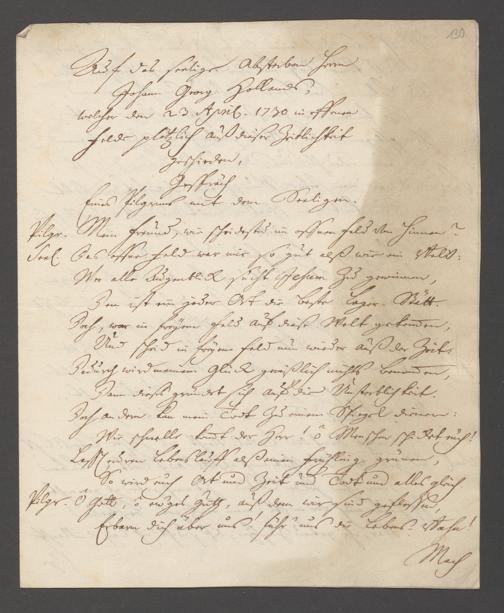 130
Auf das seelige Absterben Herrn
Johann Georg Hollands,
welcher den 23 April. 1730 in offenem
Felde plötzlich auß dieser Zeitlichkeit
geschieden,
Gespräch
Eines Pilgrims mit dem Seeligen.
Pilgr. Mein Freund, wie scheidestu im offnen Feld von hinnen?
Seel. Das offne Feld war mir so gut alß wie ein Welt:
Wer alle Augenblick sucht Jesum zu gewinnen,
Dem ist ein jeder Ort die beste Lager-Stätt.
Ich, war in freyem Feld auf diese Welt gekommen,
Und schied in freyem Feld nun wieder auß der Zeit:
Dadurch wird meinem Glück gewißlich nichts benommen,
Dann dieses gründet sich auf die Unsterblichkeit,
Doch andern kan mein Todt zu einem Spiegel dienen:
Wie schnelle kommt der Herr! ô Menschen schicket euch!
Lasst euren Lebenslauf alß einen Frühling grünen,
So wird euch Ort und Zeit und Todt und alles gleich
Pilgr. Ô Gott, ô ewges Gutt, auß dem wir sind geflossen,
Erbarm dich über uns! führ uns die Lebens-Bahn!
Mach